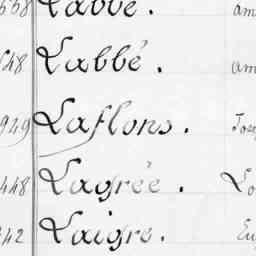 558 Labbé. am
548 Labbé. am
949 Laflons. Jose
448 Lagrée. Lo
342 Laigre. Eu